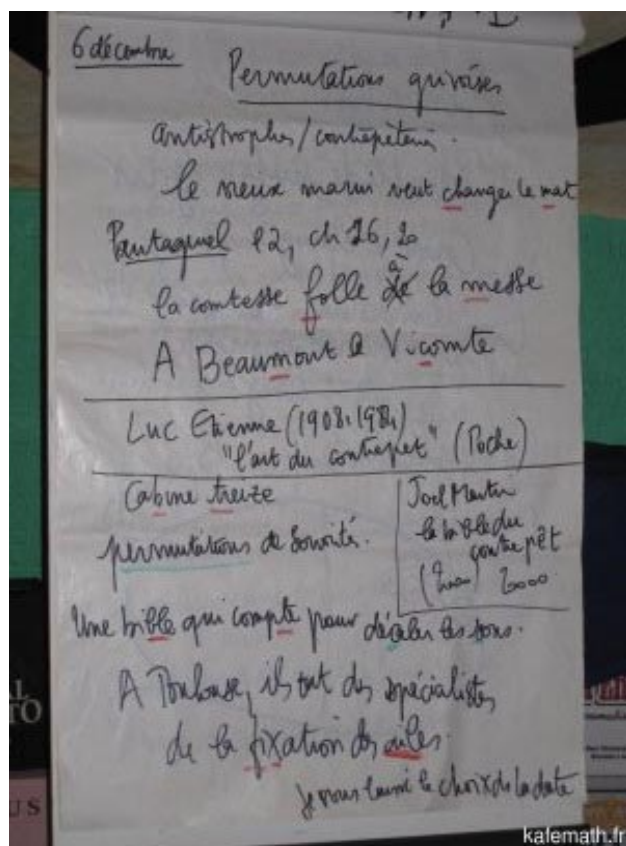 6 décembre
Permutations grivoises
antistrophes/contrepèterie.
le vieux marin veut changer le mat
Pantagruel l2, ch 16, 20
la comtesse folle à la messe
A Beaumont le Vicomte
Luc Etienne (1908-1984)
"l'art du contrepet" (Poche)
Cabine treize
permutations de sonorité.
Joel Martin
la bible du
contrepêt
2000
Une bible qui compte pour décaler les sons.
A Toulouse, ils ont des spécialistes
de la fixation des ailes.
Je vous laisse le choix de la date
kafemath.fr